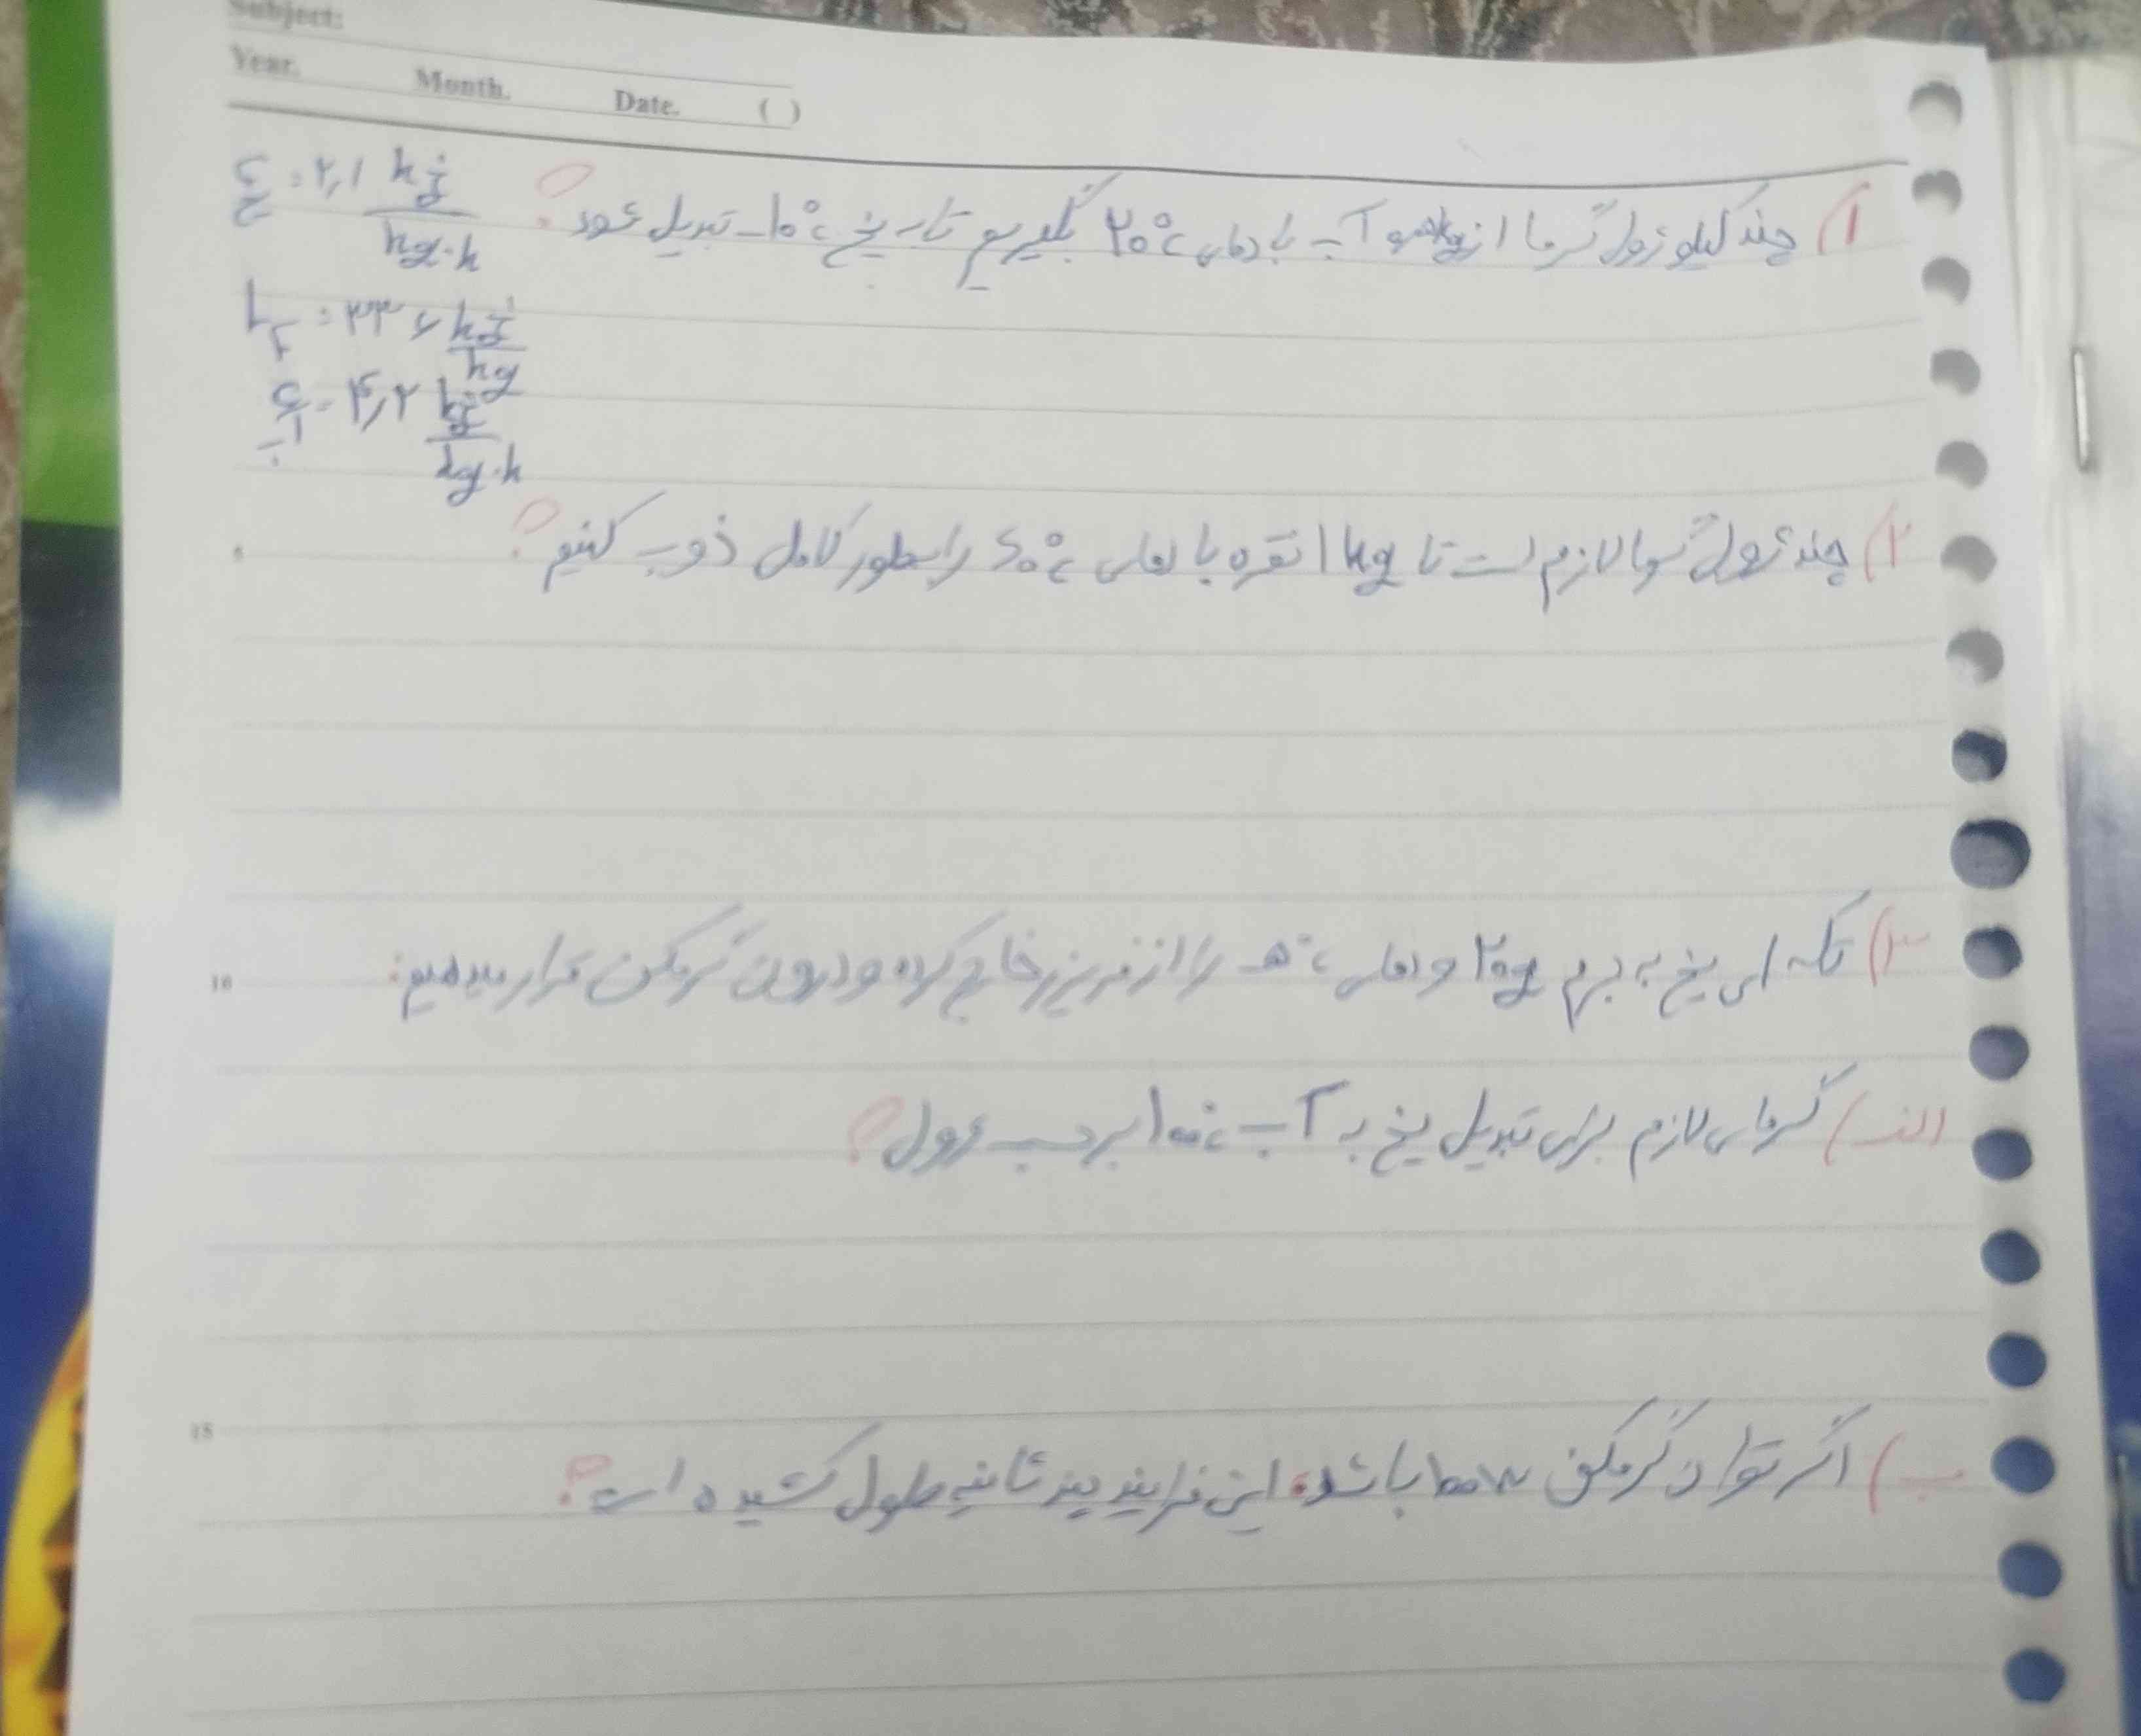 Subject:
Year. Month. Date. ( )
۱) چند کیلوژول گرما از آب با دمای ۲۰°c بگیریم تا به یخ ۱۰°c- تبدیل شود؟
c یخ = ۲,۱ kj/kg.k
LF = ۳۳۶ kj/kg
c آب = ۴,۲ kj/kg.k
۲) چند ژول گرما لازم است تا ۱kg نقره با دمای ۶۰°c را بطور کامل ذوب کنیم؟
5
۳) تکه ای یخ به جرم ۲۰g و دمای ۵°c- را از فریزر خارج کرده و درون گرمکن قرار میدهیم:
10
الف) گرمای لازم برای تبدیل یخ به آب ۱۰۰°c بر حسب ژول؟
15
ب) اگر توان گرمکن باشد، این فرایند چند ثانیه طول کشیده است؟